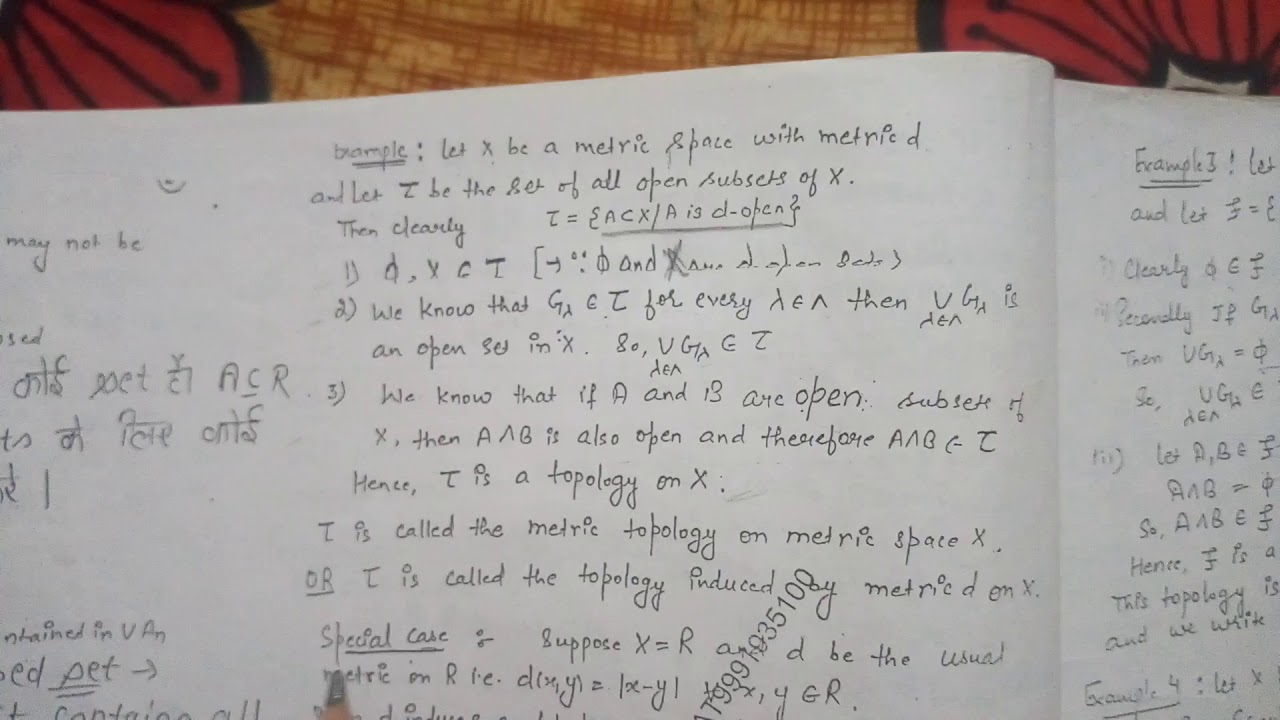 may not be
osed
कोई set है। A⊆R
के लिए कोई
contained in ∪An
set →
contains all
Example : let X be a metric space with metric d
and let τ be the set of all open subsets of X.
Then clearly τ = {A⊂X/A is d-open}
1) ϕ, X ∈ τ [→ ∵ ϕ and X are d-open sets]
2) We know that Gλ ∈ τ for every λ∈Λ then ∪Gλ is
λ∈Λ
an open set in X. So, ∪Gλ ∈ τ
λ∈Λ
3) We know that if A and B are open subsets of
X, then A∩B is also open and therefore A∩B ∈ τ
Hence, τ is a topology on X.
τ is called the metric topology on metric space X.
OR τ is called the topology induced by metric d on X.
Special case :- Suppose X = R and d be the usual
metric on R i.e. d(x,y) = |x-y| ∀ x, y ∈ R.
Example 3 : let
and let
i) Clearly ϕ ∈
ii) Secondly If Gλ
Then ∪Gλ = ϕ
So, ∪Gλ ∈
λ∈Λ
iii) let A, B ∈
A∩B = ϕ
So, A∩B ∈
Hence, is a
This topology is
and we write
Example 4 : let X